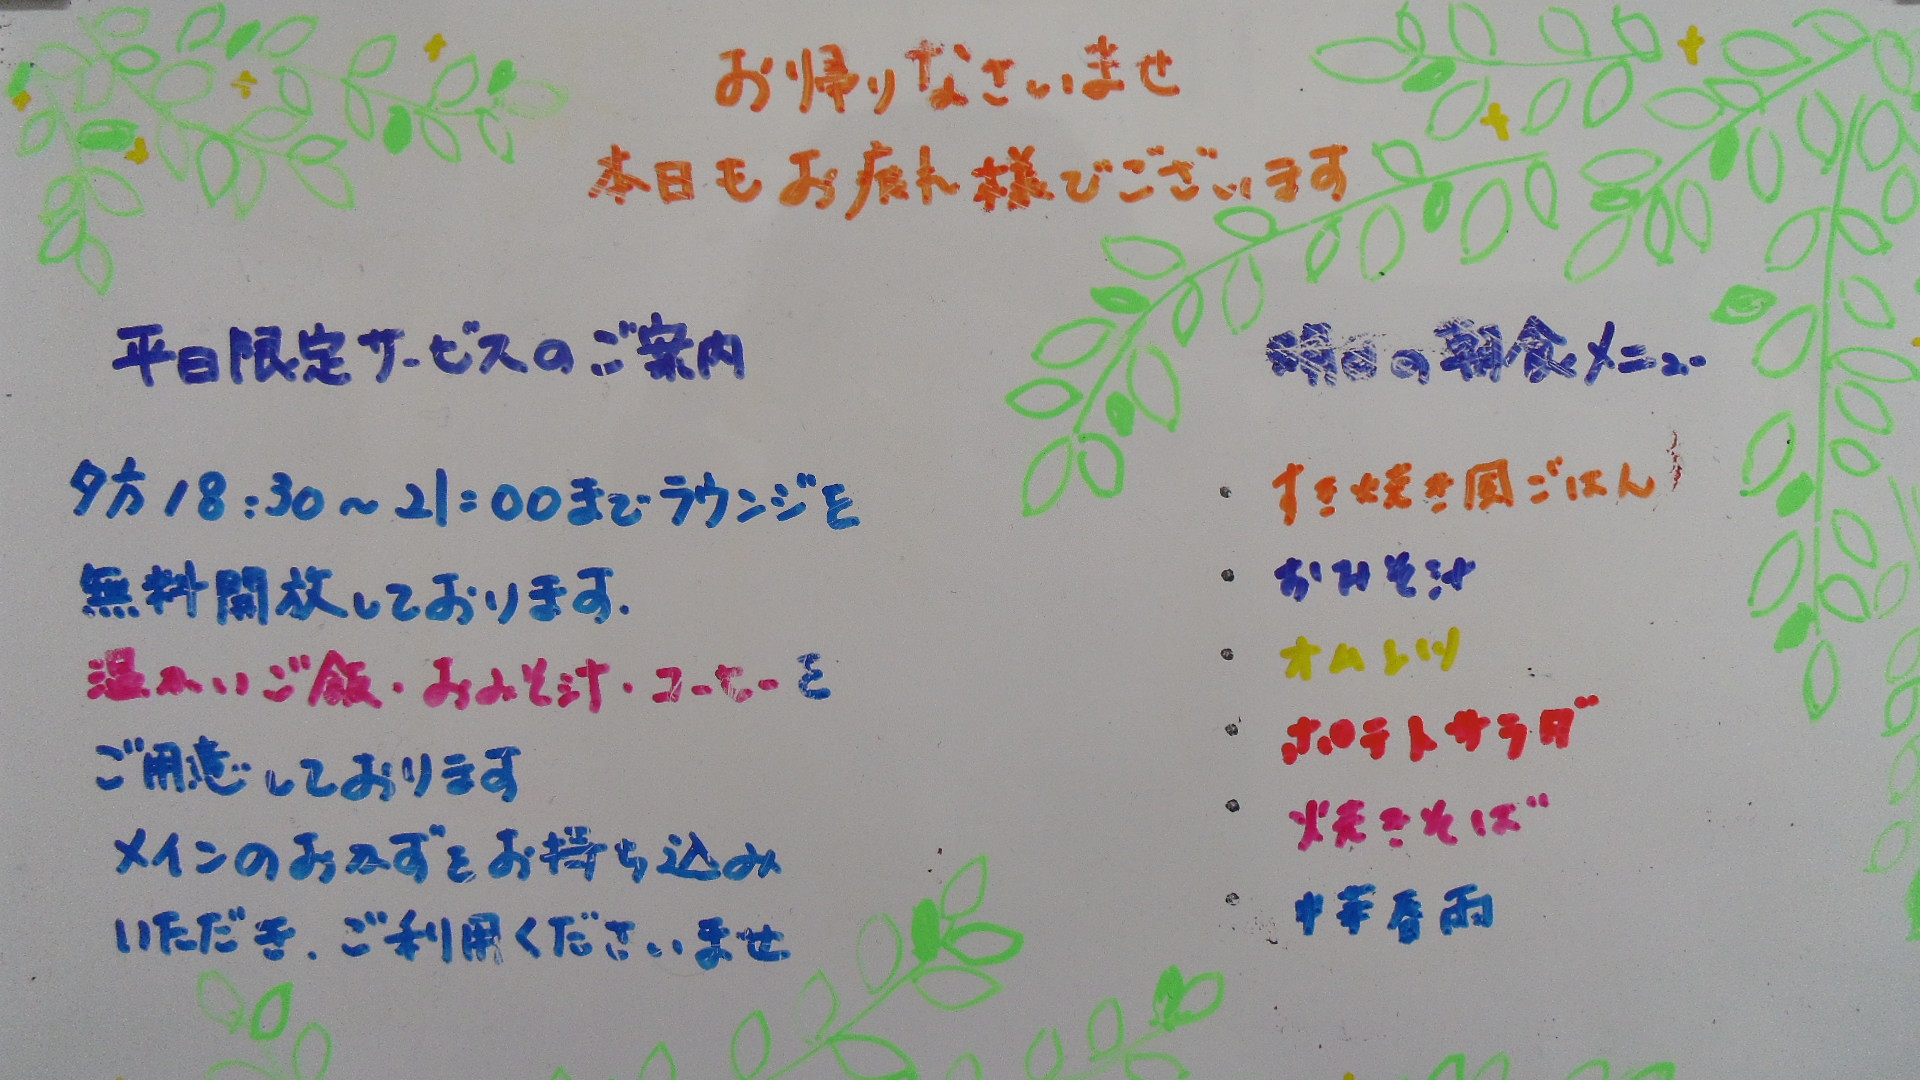 お帰りなさいませ
本日もお疲れ様でございます
平日限定サービスのご案内
夕方18:30～21:00までラウンジを
無料開放しております.
温かいご飯・おみそ汁・コーヒーを
ご用意しております
メインのおかずをお持ち込み
いただき、ご利用くださいませ
明日の朝食メニュー
・すき焼き風ごはん
・おみそ汁
・オムレツ
・ポテトサラダ
・焼きそば
・中華春雨